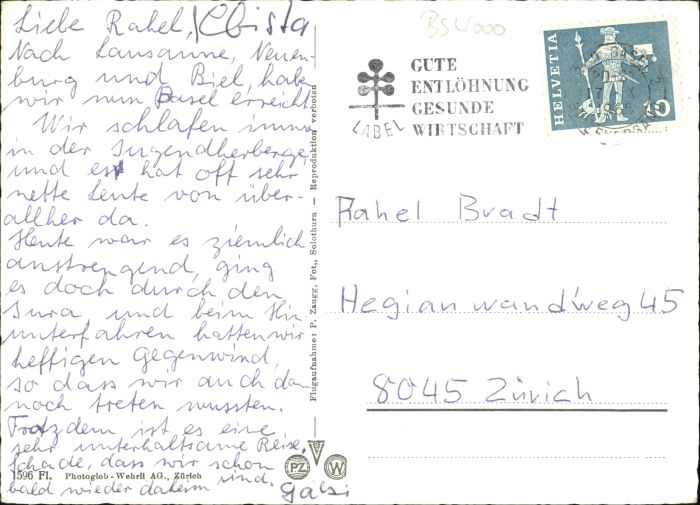 Liebe Rahel, Christa
Nach Lausanne, Neuen-
burg und Biel, habe
wir nun Basel erreicht.
Wir schlafen immer
in der Jugendherberge,
und es hat oft sehr
nette Leute von über-
allher da.
Heute war es ziemlich
anstrengend, ging
es doch durch den
Jura, und beim Hi-
unterfahren hatten wir
heftigen Gegenwind,
so dass wir auch dan
noch treten mussten.
Trotzdem ist es eine
sehr unterhaltsame Reise.
Schade, dass wir schon
bald wieder daheim sind.
Gabi
1596 Fl. Photoglob-Wehrli AG., Zürich
Flugaufnahme: P. Zaugg, Fot., Solothurn - Reproduktion verboten
PZ
W
BS 4000
LABEL
GUTE
ENTLÖHNUNG
GESUNDE
WIRTSCHAFT
HELVETIA
10
Rahel Bradt
Hegianwandweg 45
8045 Zürich